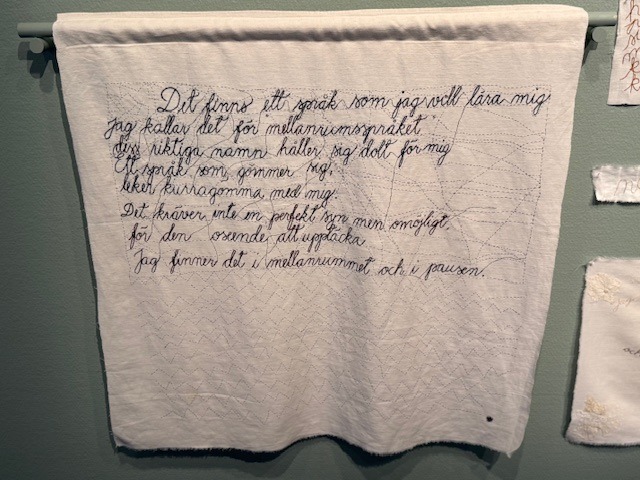 Det finns ett språk som jag vill lära mig
jag kallar det för mellanrumsspråket
dess riktiga namn håller sig dolt för mig
Ett språk som gömmer sig,
leker kurragömma med mig.
Det kräver inte en perfekt syn men omöjligt
för den oseende att upptäcka
Jag finner det i mellanrummet och i pausen.